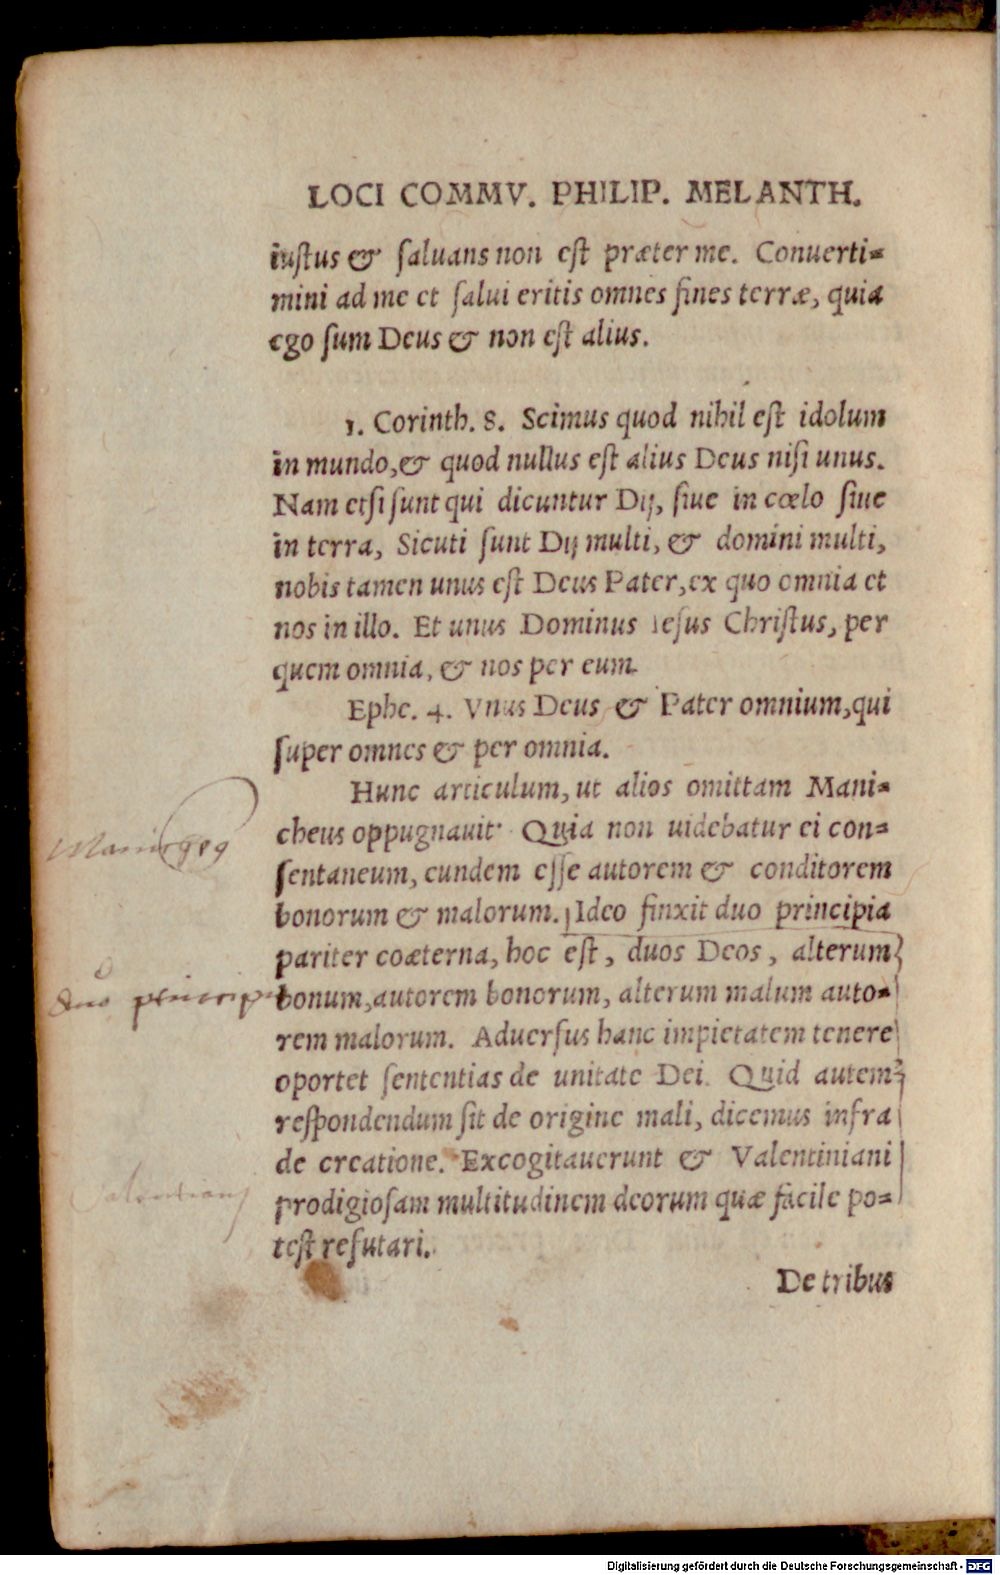 LOCI COMMV. PHILIP. MELANTH.
iustus & saluans non est præter me. Conuerti-
mini ad me et salui eritis omnes fines terræ, quia
ego sum Deus & non est alius.
1. Corinth. 8. Scimus quod nihil est idolum
in mundo, & quod nullus est alius Deus nisi unus.
Nam etsi sunt qui dicuntur Dij, siue in cœlo siue
in terra, Sicuti sunt Dij multi, & domini multi,
nobis tamen unus est Deus Pater, ex quo omnia et
nos in illo. Et unus Dominus Iesus Christus, per
quem omnia, & nos per eum.
Ephe. 4. Vnus Deus & Pater omnium, qui
super omnes & per omnia.
Hunc articulum, ut alios omittam Mani-
cheus oppugnauit. Quia non uidebatur ei con-
sentaneum, eundem esse autorem & conditorem
bonorum & malorum. Ideo finxit duo principia
pariter coæterna, hoc est, duos Deos, alterum
duo
bonum, autorem bonorum, alterum malum auto-
rem malorum. Aduersus hanc impietatem tenere
oportet sententias de unitate Dei. Quid autem
respondendum sit de origine mali, dicemus infra
de creatione. Excogitauerunt & Valentiniani
prodigiosam multitudinem deorum quæ facile po-
test refutari.
De tribus
Digitalisierung gefördert durch die Deutsche Forschungsgemeinschaft - DFG